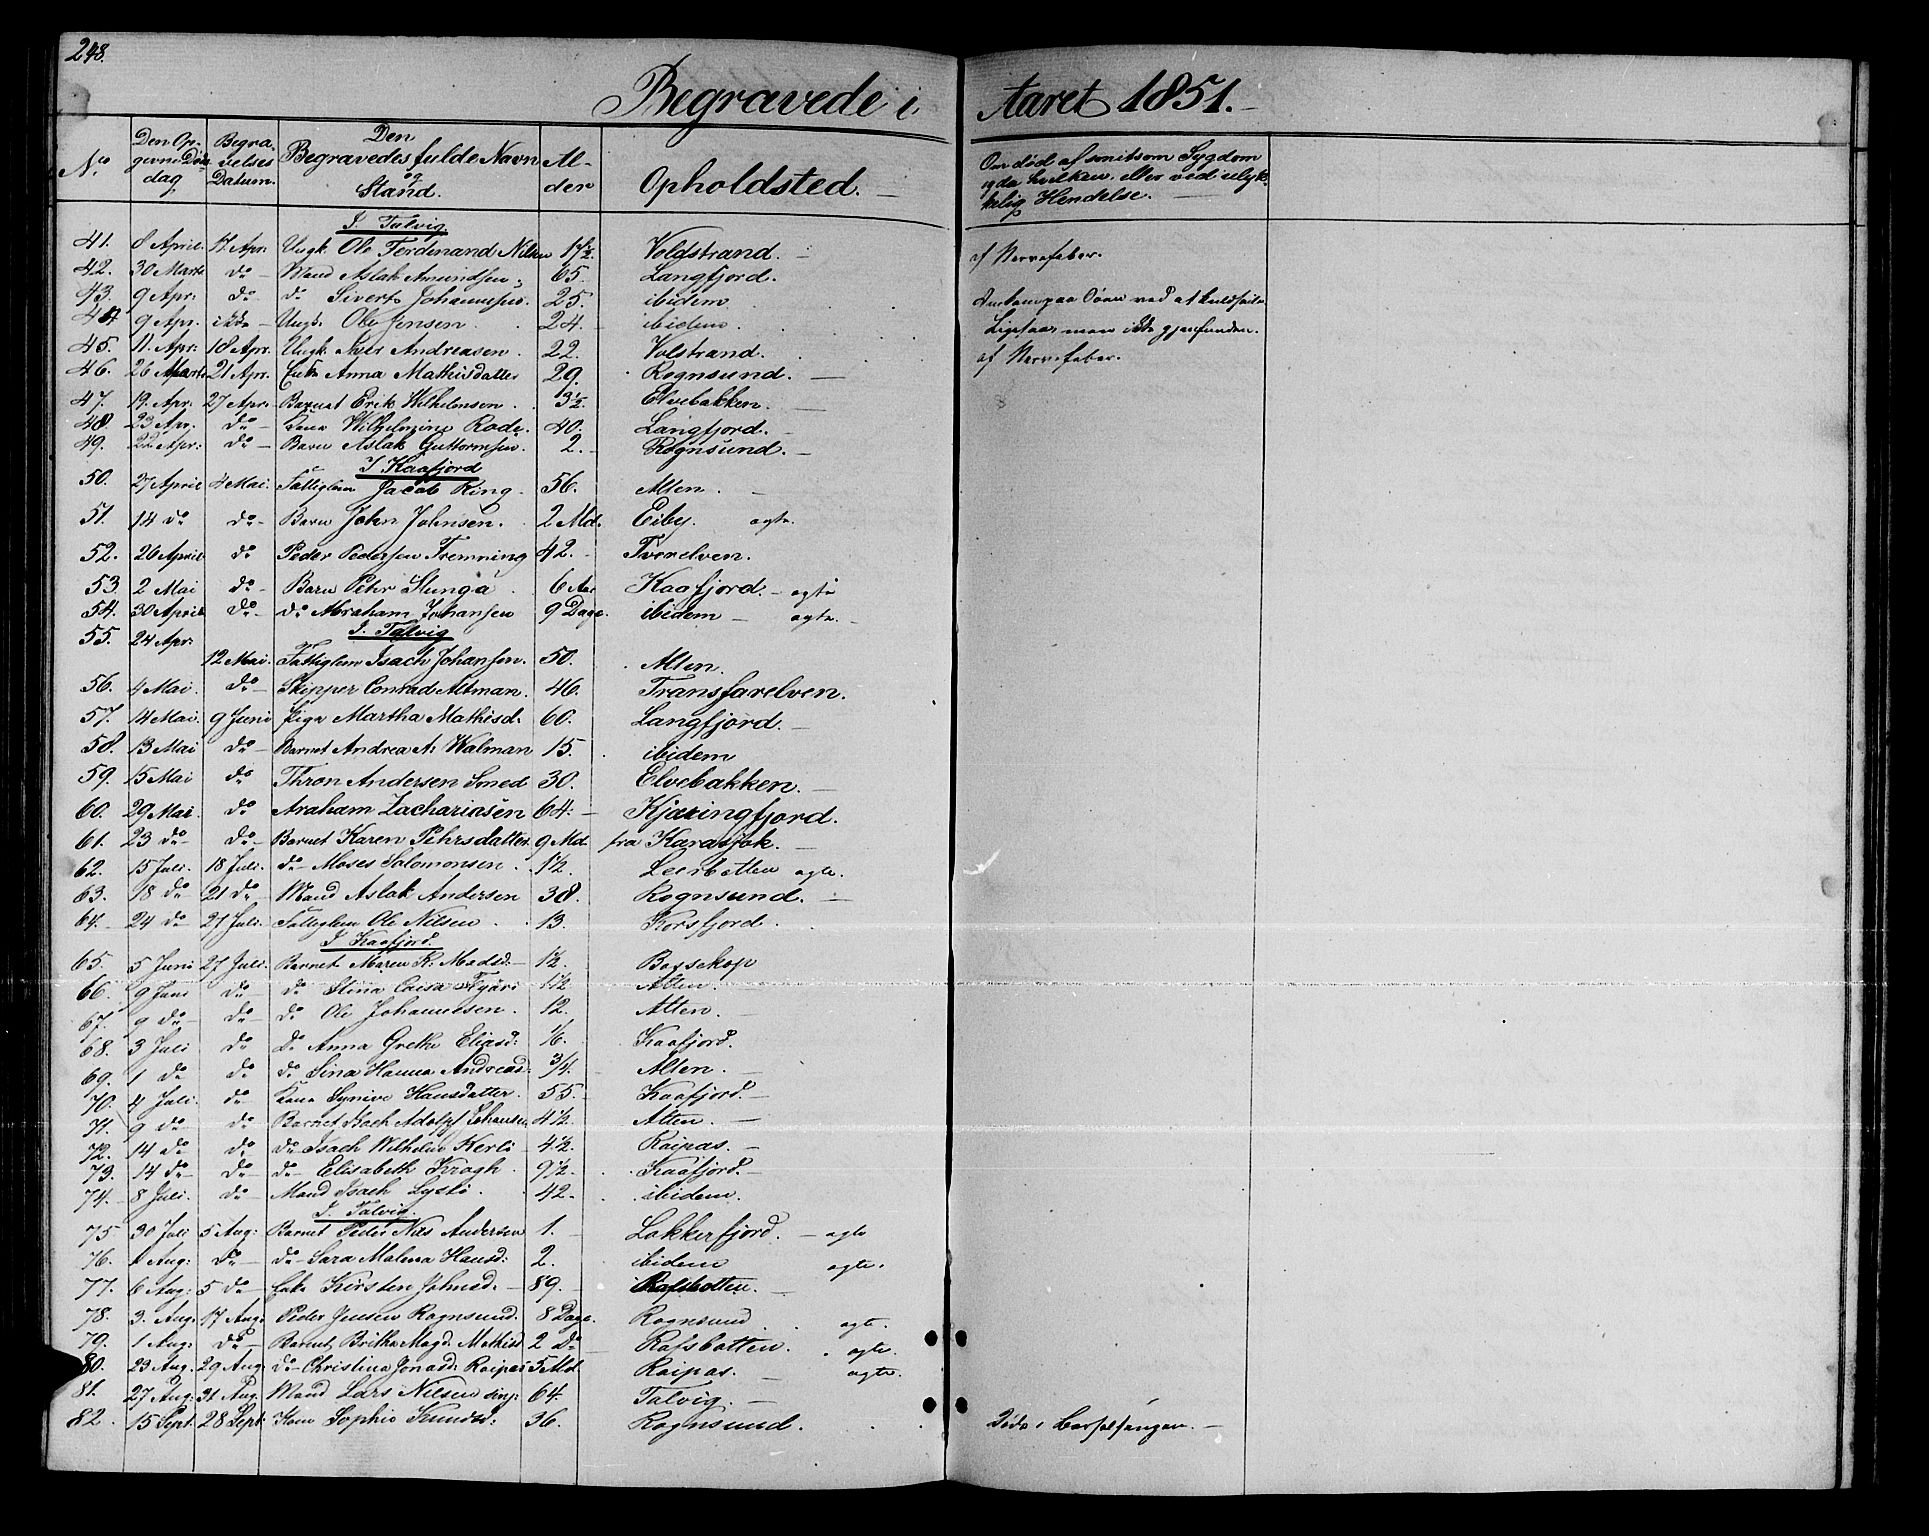 248.
Begravede i Aaret 1851.
No Den Opgevne Dødsdag Begravelses Datum. Den Begravedes fulde Navn og Stand. Alder Opholdsted. Om død af smitsom Sygdom og da hvilken, eller ved ulykkelig Hendelse.
I Talvig
41. 8 April. 17 Apr. Ungk. Ole Ferdinand Nilsen 17½. Voldstrand. af Nervefeber.
42. 30 Marts do Mand Aslak Amundsen 65. Langfjord.
43. 9 Apr: do do Sivert Johannesen 25. ibidem Omkom paa Søen ved at kuldseile
44 9 Apr. ikke Ungk. Ole Jensen. 24. ibidem. Ligene man ikke gjenfunden.
45. 11. Apr: 18 Apr. Ungk. Iver Andreasen. 22. Volstrand. af Nervefeber.
46. 26 Marts 21 Apr. Enke Anna Mathisdatter 29. Rognsund.
47. 19. Apr. 27 Apr. Barnet Erik Wilhelmsen. 3½. Elvebakken.
48. 23 Apr. do Kone Wilhelmine Rode. 40. Langfjord.
49. 22 Apr: do Barn Aslak Guttormsen. 2. Rognsund.
I Kaafjord
50. 27 April 4 Mai. Fattiglem Jacob Ring. 56. Alten.
51. 14 do do Barn John Johnsen. 2 Md. Eiby. ægte.
52. 26 April do Peder Pedersen Fremning 42. Tverelven.
53 2 Mai do Barn Pehr Stunga 6 Aar Kaafjord. ægte
54. 30 April do do Abraham Johansen 9 Dage. ibidem ægte.
I. Talvig
55. 24 Apr: 12 Mai. Fattiglem Isach Johansen. 50. Alten.
56. 4 Mai. do Skipper Conrad Altman. 46. Transfarelven.
57. 14 Mai. 9 Juni Pige Martha Mathisd. 60. Langfjord.
58. 13 Mai do Barnet Andrea A. Walman 15. ibidem
59. 15 Mai do Thron Andersen Smed 30. Elvebakken.
60. 29 Mai. do Araham Zachariasen 64. Kjæringfjord.
61. 23 do do Barnet Karen Pehrsdatter 9 Md. fra Karasjok.
62. 15 Juli. 18 Juli. do Moses Salomonsen. 1½. Leerbotten ægte.
63. 18 do 21 do Mand Aslak Andersen 38. Rognsund.
64. 24 do 27 Juli. Fattiglem Ole Nilsen. 13. Korsfjord.
I Kaafjord.
65. 5 Juni 27 Juli. Barnet Maren K. Madsd. 1½. Bossekop
66. 9 Juni do do Stina Caisa Fyäri 1½ Alten.
67. 9 do do do Ole Johannesen. 12. Alten.
68. 3 Juli do do Anna Grethe Eliasd: 1/6. Kaafjord.
69. 1 do do do Sina Hanna Andreasd. 3/4. Alten.
70. 4 Juli. do Kone Synive Hansdatter. 55. Kaafjord.
71. 9 do do Barnet Isach Adolph Johansen 4½. Alten.
72. 14 do do do Isach Wilhelm Kerlö 4½. Raipas.
73. 14 do do do Elisabeth Krogh. 9½. Kaafjord.
74. 8 Juli. do Mand Isach Lystö. 42. ibidem.
I. Talvig.
75 30 Juli 5 Aug: Barnet Peder Nils Andersen 1. Lakkerfjord. ægte
76. 1 Aug: do do Sara Malena Hansd: 2. ibidem ægte.
77. 6 Aug: 5 do Enke Kirsten Johnsd. 89. Rafsbotten.
78. 3. Aug: 17 Aug: Peder Jensen Rognsund. 8 Dage. Rognsund ægte.
79. 1 Aug: do Barnet Britha Magd. Mathisd 2 do Rafsbotten. ægte.
80. 23 Aug. 29 Aug. do Christina Jonasd. Raipas 5 Md. Raipas. ægte.
81. 27 Aug: 31 Aug. Mand Lars Nilsen 64. Talvig.
82. 15 Sept. 28 Sept. Kone Sophie Knudsd: 36. Rognsund. Døde i Barselsengen.